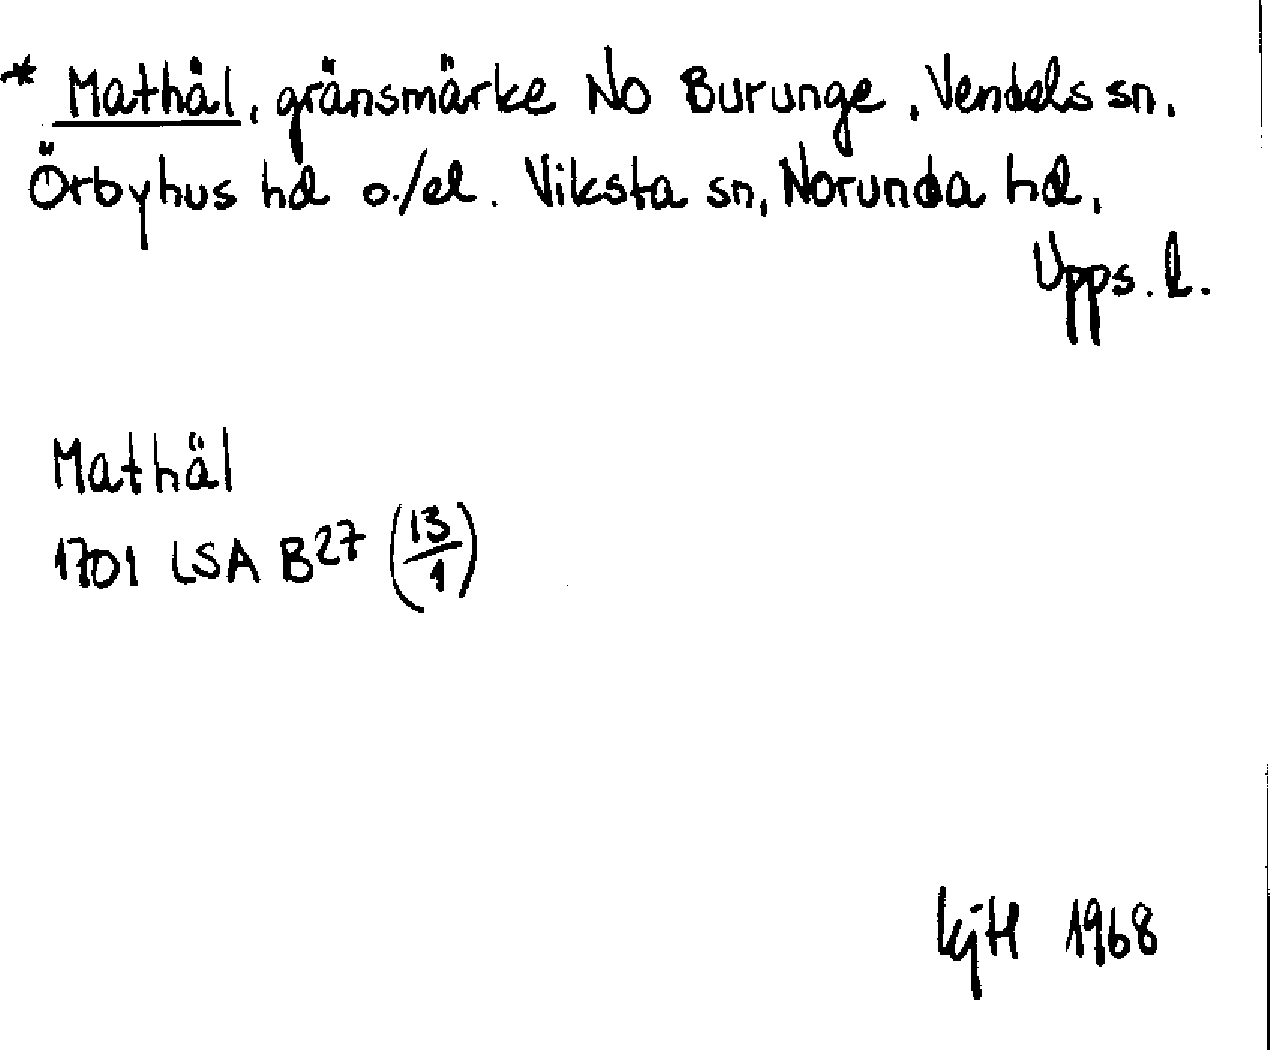 * Mathäl, gränsmärke No Burunge, Vendels sn.
Örbyhus hd o./el. Viksta sn, Norunda hd,
Upps. l.
Mathäl
1701 LSA B27 (13/1)
KjH 1968